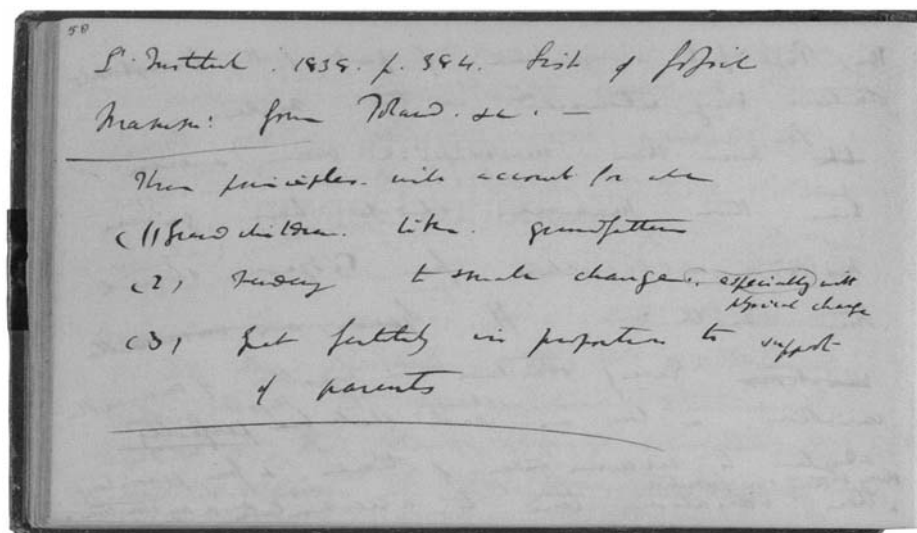 58
L'Institut. 1838. p. 384. List of fossil
Mamm: from Poland. &c. —
Three principles. will account for all
(1) Grandchildren. like. grandfathers
(2) tendency to small change. especially with
physical change
(3) great fertility in proportion to support
of parents